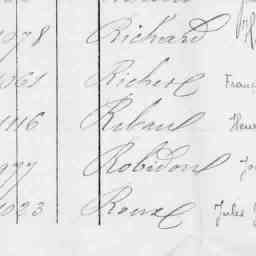 978 Richard
361 Richer Franç
1116 Riban Henr
977 Robidou Jo
1023 Roux Jules